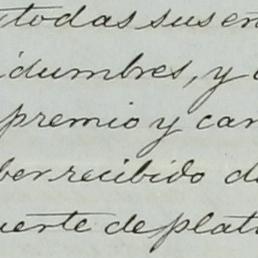 todas sus en
idumbres, y
premio y can
ber recibido d
uerte de plat